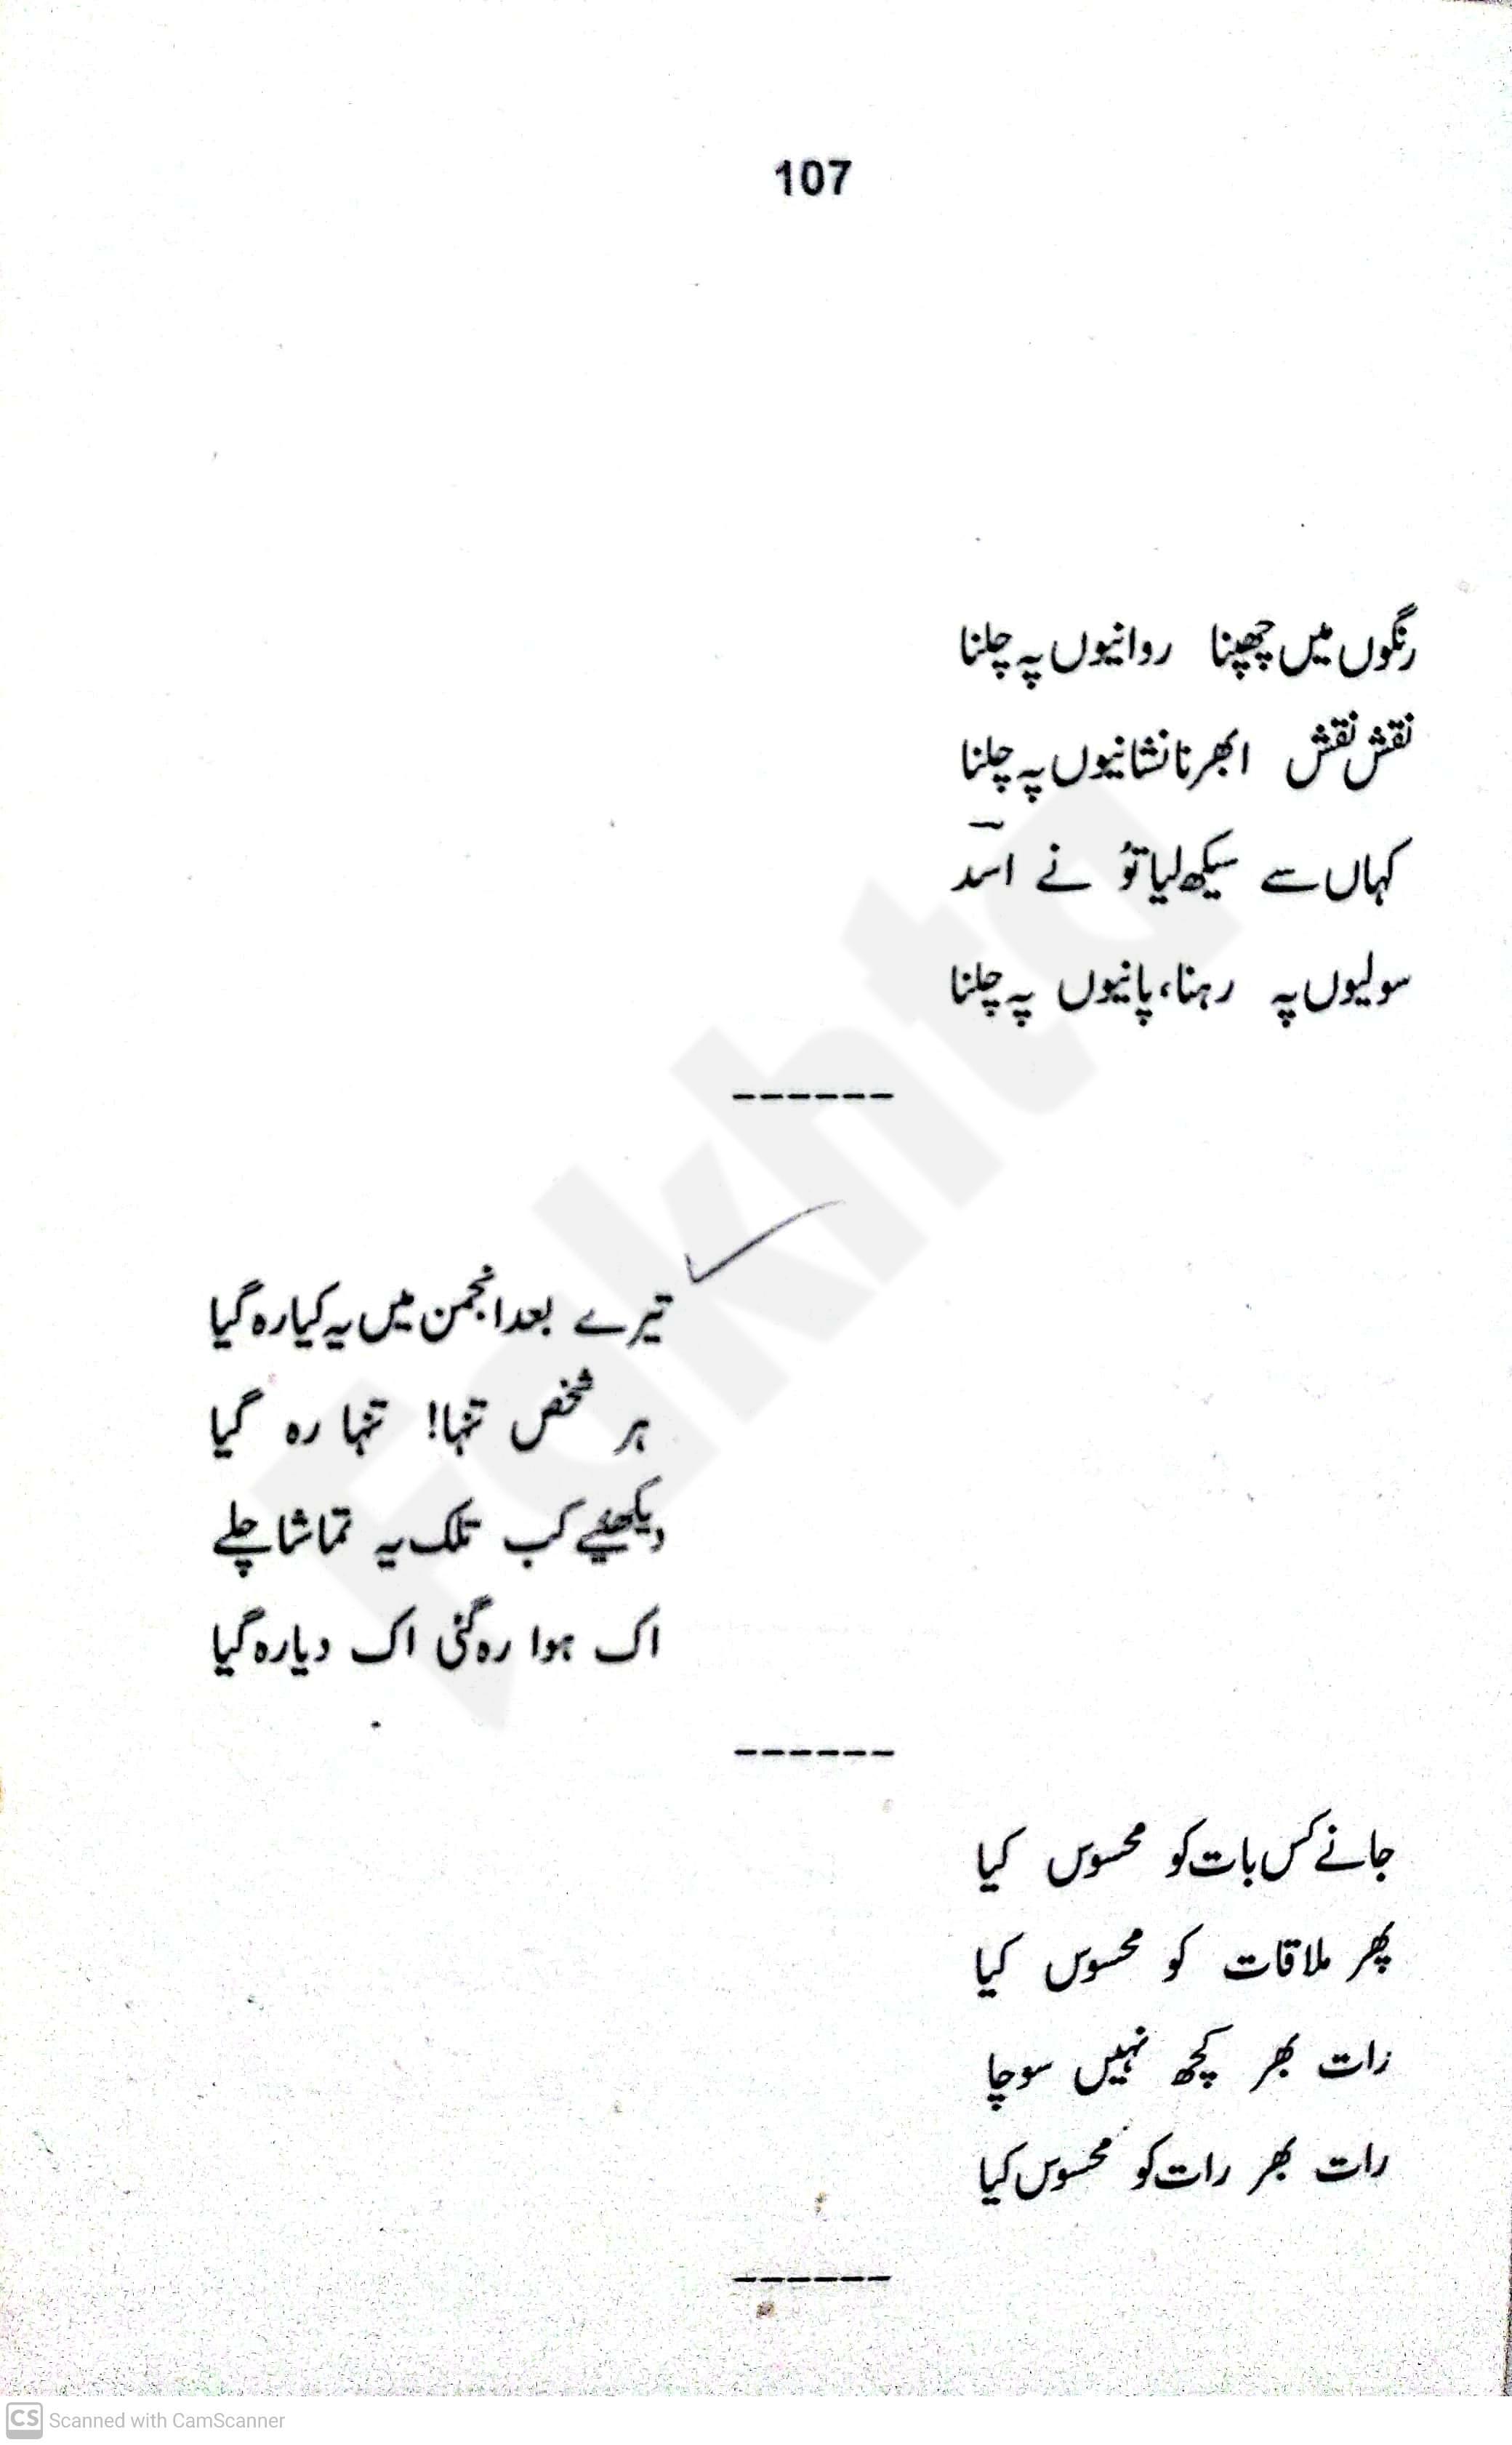 107
رنگوں میں چھپنا روانیوں پہ چلنا
نقش نقش ابھرنا نشانیوں پہ چلنا
کہاں سے سیکھ لیا تُو نے اسؔد
سولیوں پہ رہنا، پانیوں پہ چلنا
------
تیرے بعد انجمن میں یہ کیا رہ گیا
ہر شخص تنہا! تنہا رہ گیا
دیکھئیے کب تلک یہ تماشا چلے
اک ہوا رہ گئی اک دیا رہ گیا
------
جانے کس بات کو محسوس کیا
پھر ملاقات کو محسوس کیا
رات بھر کچھ نہیں سوچا
رات بھر رات کو محسوس کیا
------
Fakhta
CS Scanned with CamScanner